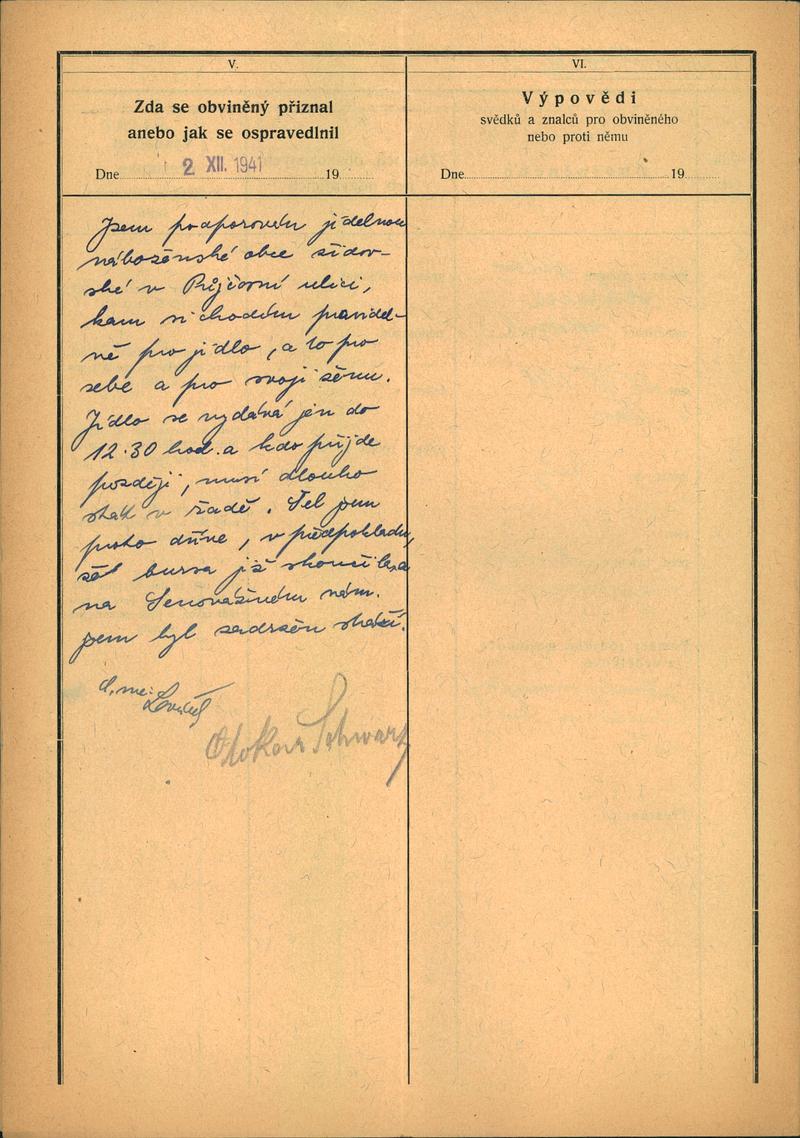 V.
Zda se obviněný přiznal
anebo jak se ospravedlnil
Dne 2 XII. 1941 19
Jsem podporován jídelnou
náboženské obce židov-
ské v Půjčovní ulici,
kam si chodím pravidel-
ně pro jídlo, a to pro
sebe a pro svoji ženu.
Jídlo se vydává jen do
12.30 hod. a kdo přijde
později, musí dlouho
stát v řadě. Šel jsem
proto dříve, v předpokladu,
že bursa již skončila, a
na Senovážném nám.
jsem byl zadržen stráží.
Otokar Schwarz
VI.
Výpovědi
svědků a znalců pro obviněného
nebo proti němu
Dne 19